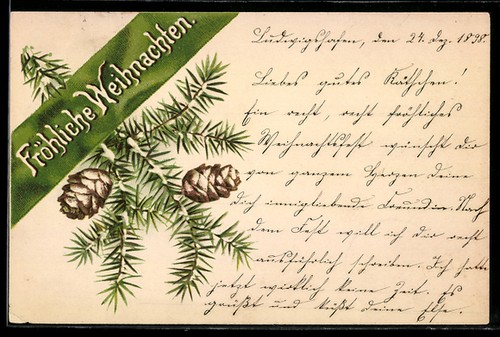 Fröhliche Weihnachten.
Ludwigshafen, den 24. Dez. 1898.
Liebes gutes Käthchen!
Ein recht, recht fröhliches
Weihnachtsfest wünscht dir
von ganzem Herzen deine
dich innigliebende Freundin. Nach
dem Fest will ich dir recht
ausführlich schreiben. Ich hatte
jetzt wirklich keine Zeit. Es
grüßt und küßt deine Else.